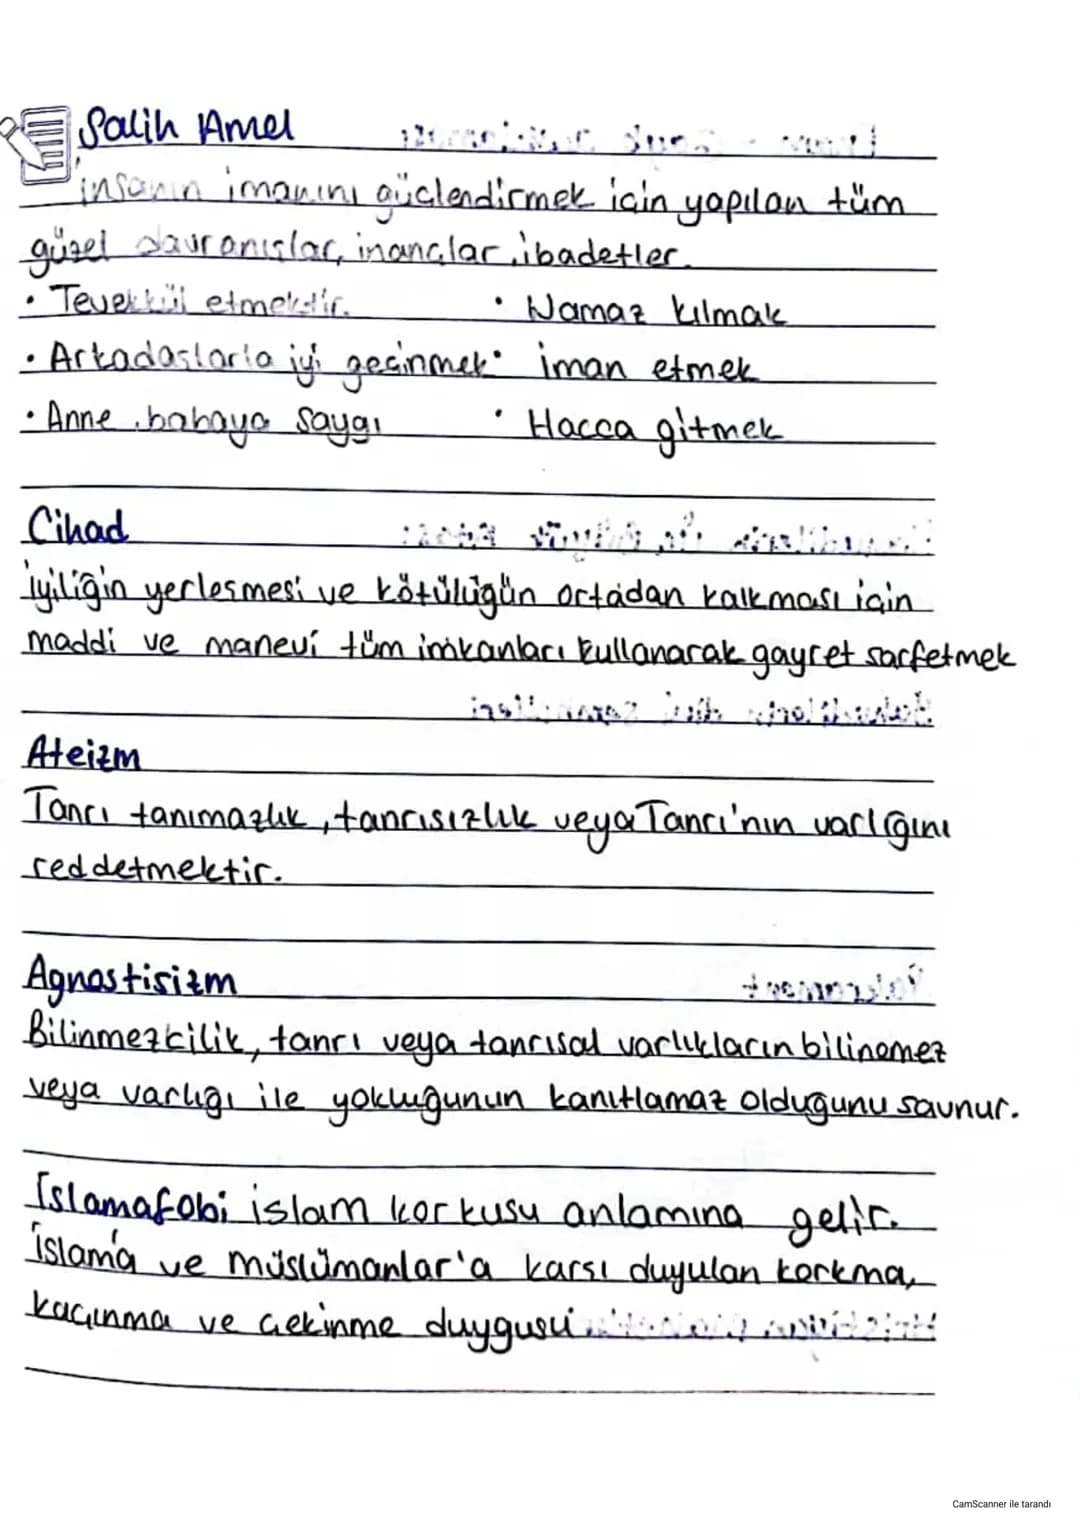 Salih Amel
insanın imanını güçlendirmek için yapılan tüm
güzel davranışlar, inançlar, ibadetler.
• Tevekkül etmektir. • Namaz kılmak
• Arkadaşlarla iyi geçinmek • iman etmek
• Anne babaya saygı • Hacca gitmek
Cihad
iyiliğin yerleşmesi ve kötülüğün ortadan kalkması için
maddi ve manevi tüm imkanları kullanarak gayret sarfetmek
Ateizm
Tanrı tanımazlık, tanrısızlık veya Tanrı'nın varlığını
reddetmektir.
Agnostisizm
Bilinmezkilik, tanrı veya tanrısal varlıkların bilinemez
veya varlığı ile yokluğunun kanıtlamaz olduğunu savunur.
İslamafobi islam korkusu anlamına gelir.
islam'a ve müslümanlar'a karşı duyulan korkma,
kaçınma ve çekinme duygusu
CamScanner ile tarandı